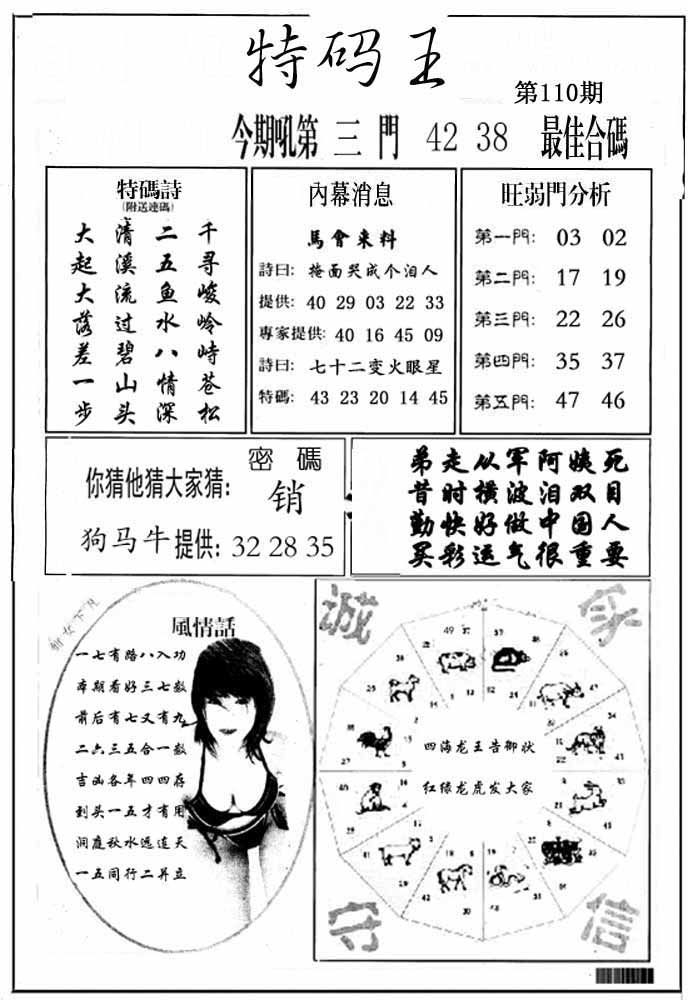 特码王
第110期
今期吼第 三 門 42 38 最佳合碼
特碼詩
(附送連碼)
千寻峻岭峙苍松
二五鱼水八情深
清溪流过碧山头
大起大落差一步
內幕消息
馬會来料
詩曰: 掩面哭成个泪人
提供: 40 29 03 22 33
專家提供: 40 16 45 09
詩曰: 七十二变火眼星
特碼: 43 23 20 14 45
旺弱門分析
第一門: 03 02
第二門: 17 19
第三門: 22 26
第四門: 35 37
第五門: 47 46
密 碼
你猜他猜大家猜: 销
狗马牛提供: 32 28 35
弟走从军阿姨死
昔时横波泪双目
勤快好做中国人
买彩运气很重要
風情話
一七有路八入功
本期看好三七数
前后有七又有九
二六三五合一数
吉凶各年四四存
到头一五才有用
洞庭秋水远连天
一五同行二并立
诚
信
守
四海龙王告御状
红绿龙虎发大家